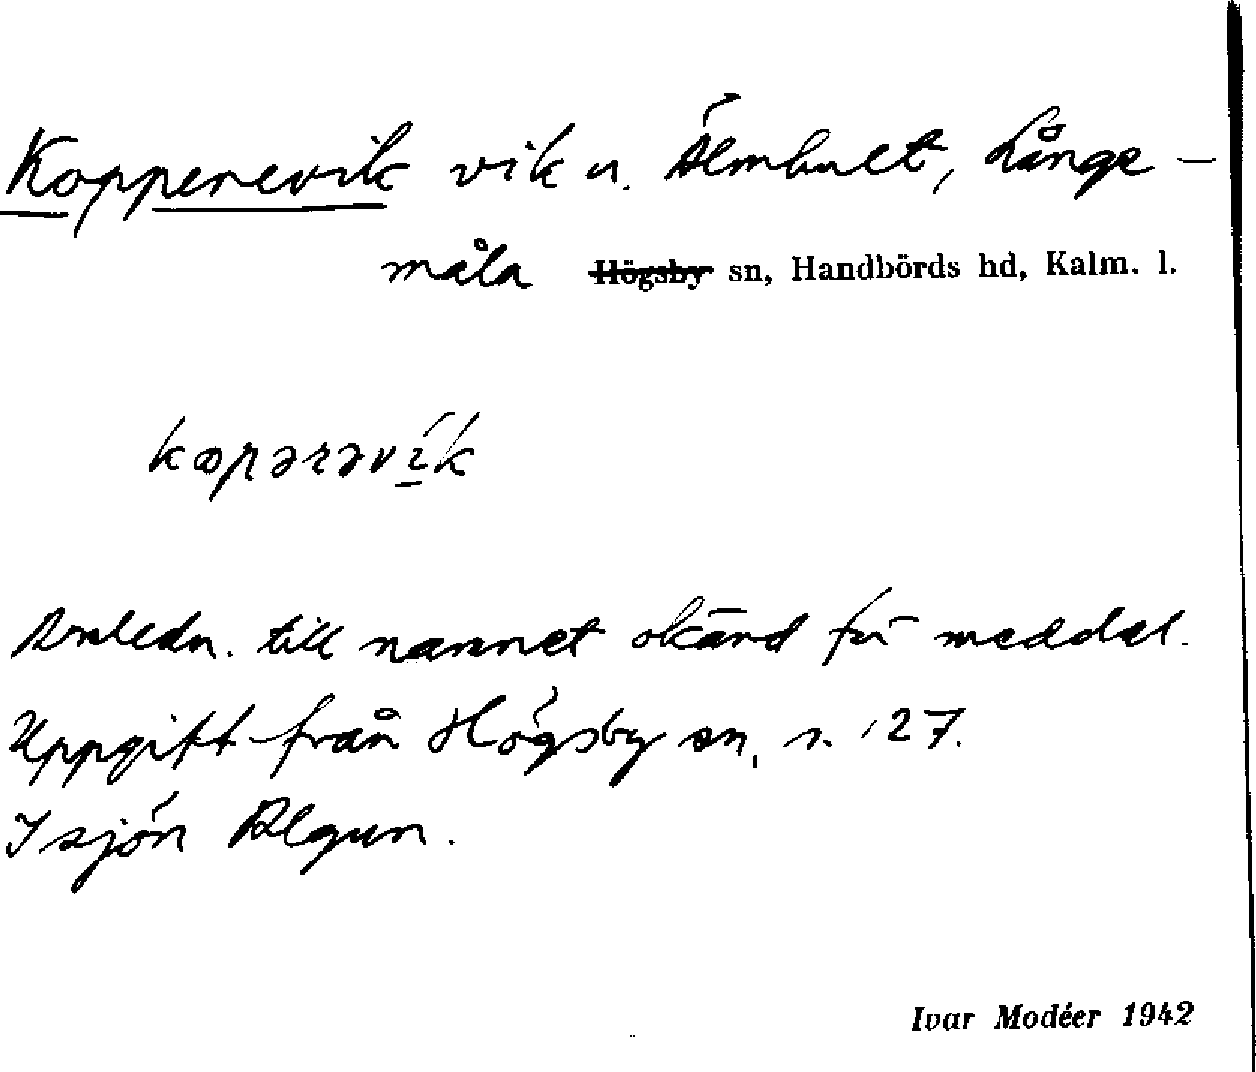 Kopparevik vik u. Älmhult, Långe-
måla Högsby sn, Handbörds hd, Kalm. l.
kꝏpərəvík
Anledn. till namnet okänd för meddel.
Uppgift från Högsby sn, s. 127.
I sjön Algun.
Ivar Modéer 1942